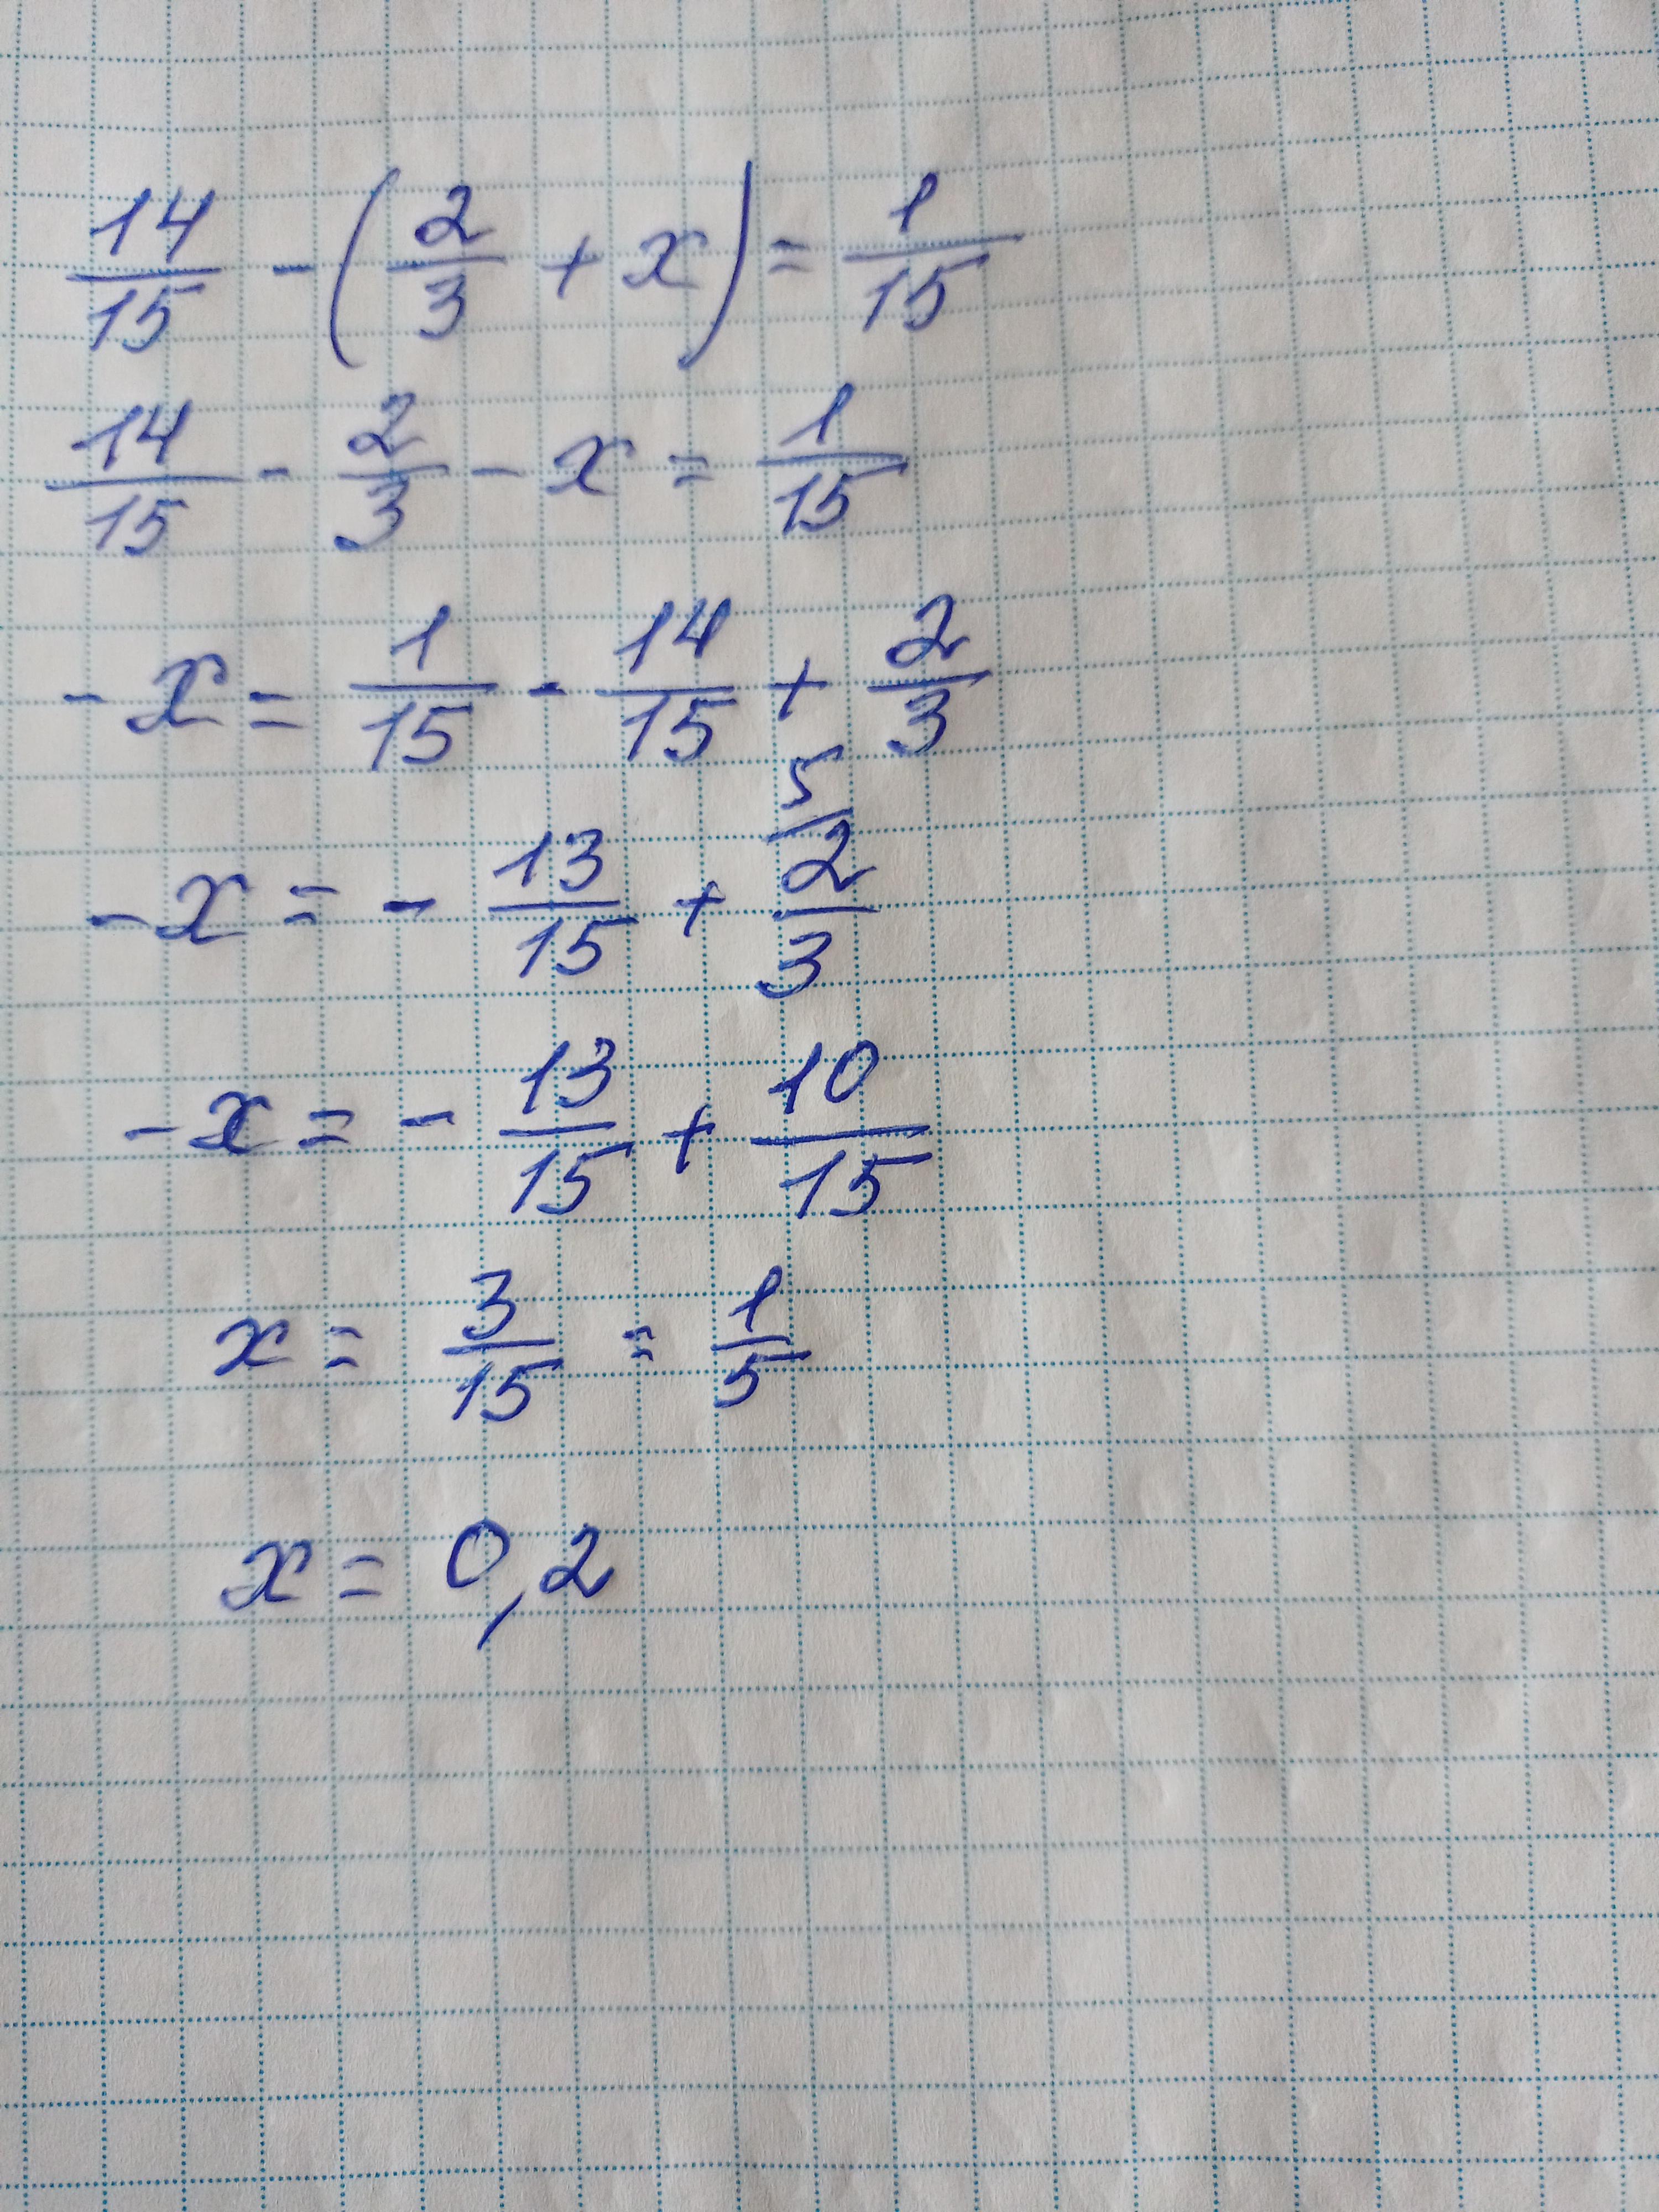 14/15 - (2/3 + x) = 1/15
14/15 - 2/3 - x = 1/15
-x = 1/15 - 14/15 + 2/3
-x = - 13/15 + 5/ 2/3
-x = - 13/15 + 10/15
x = 3/15 = 1/5
x = 0,2